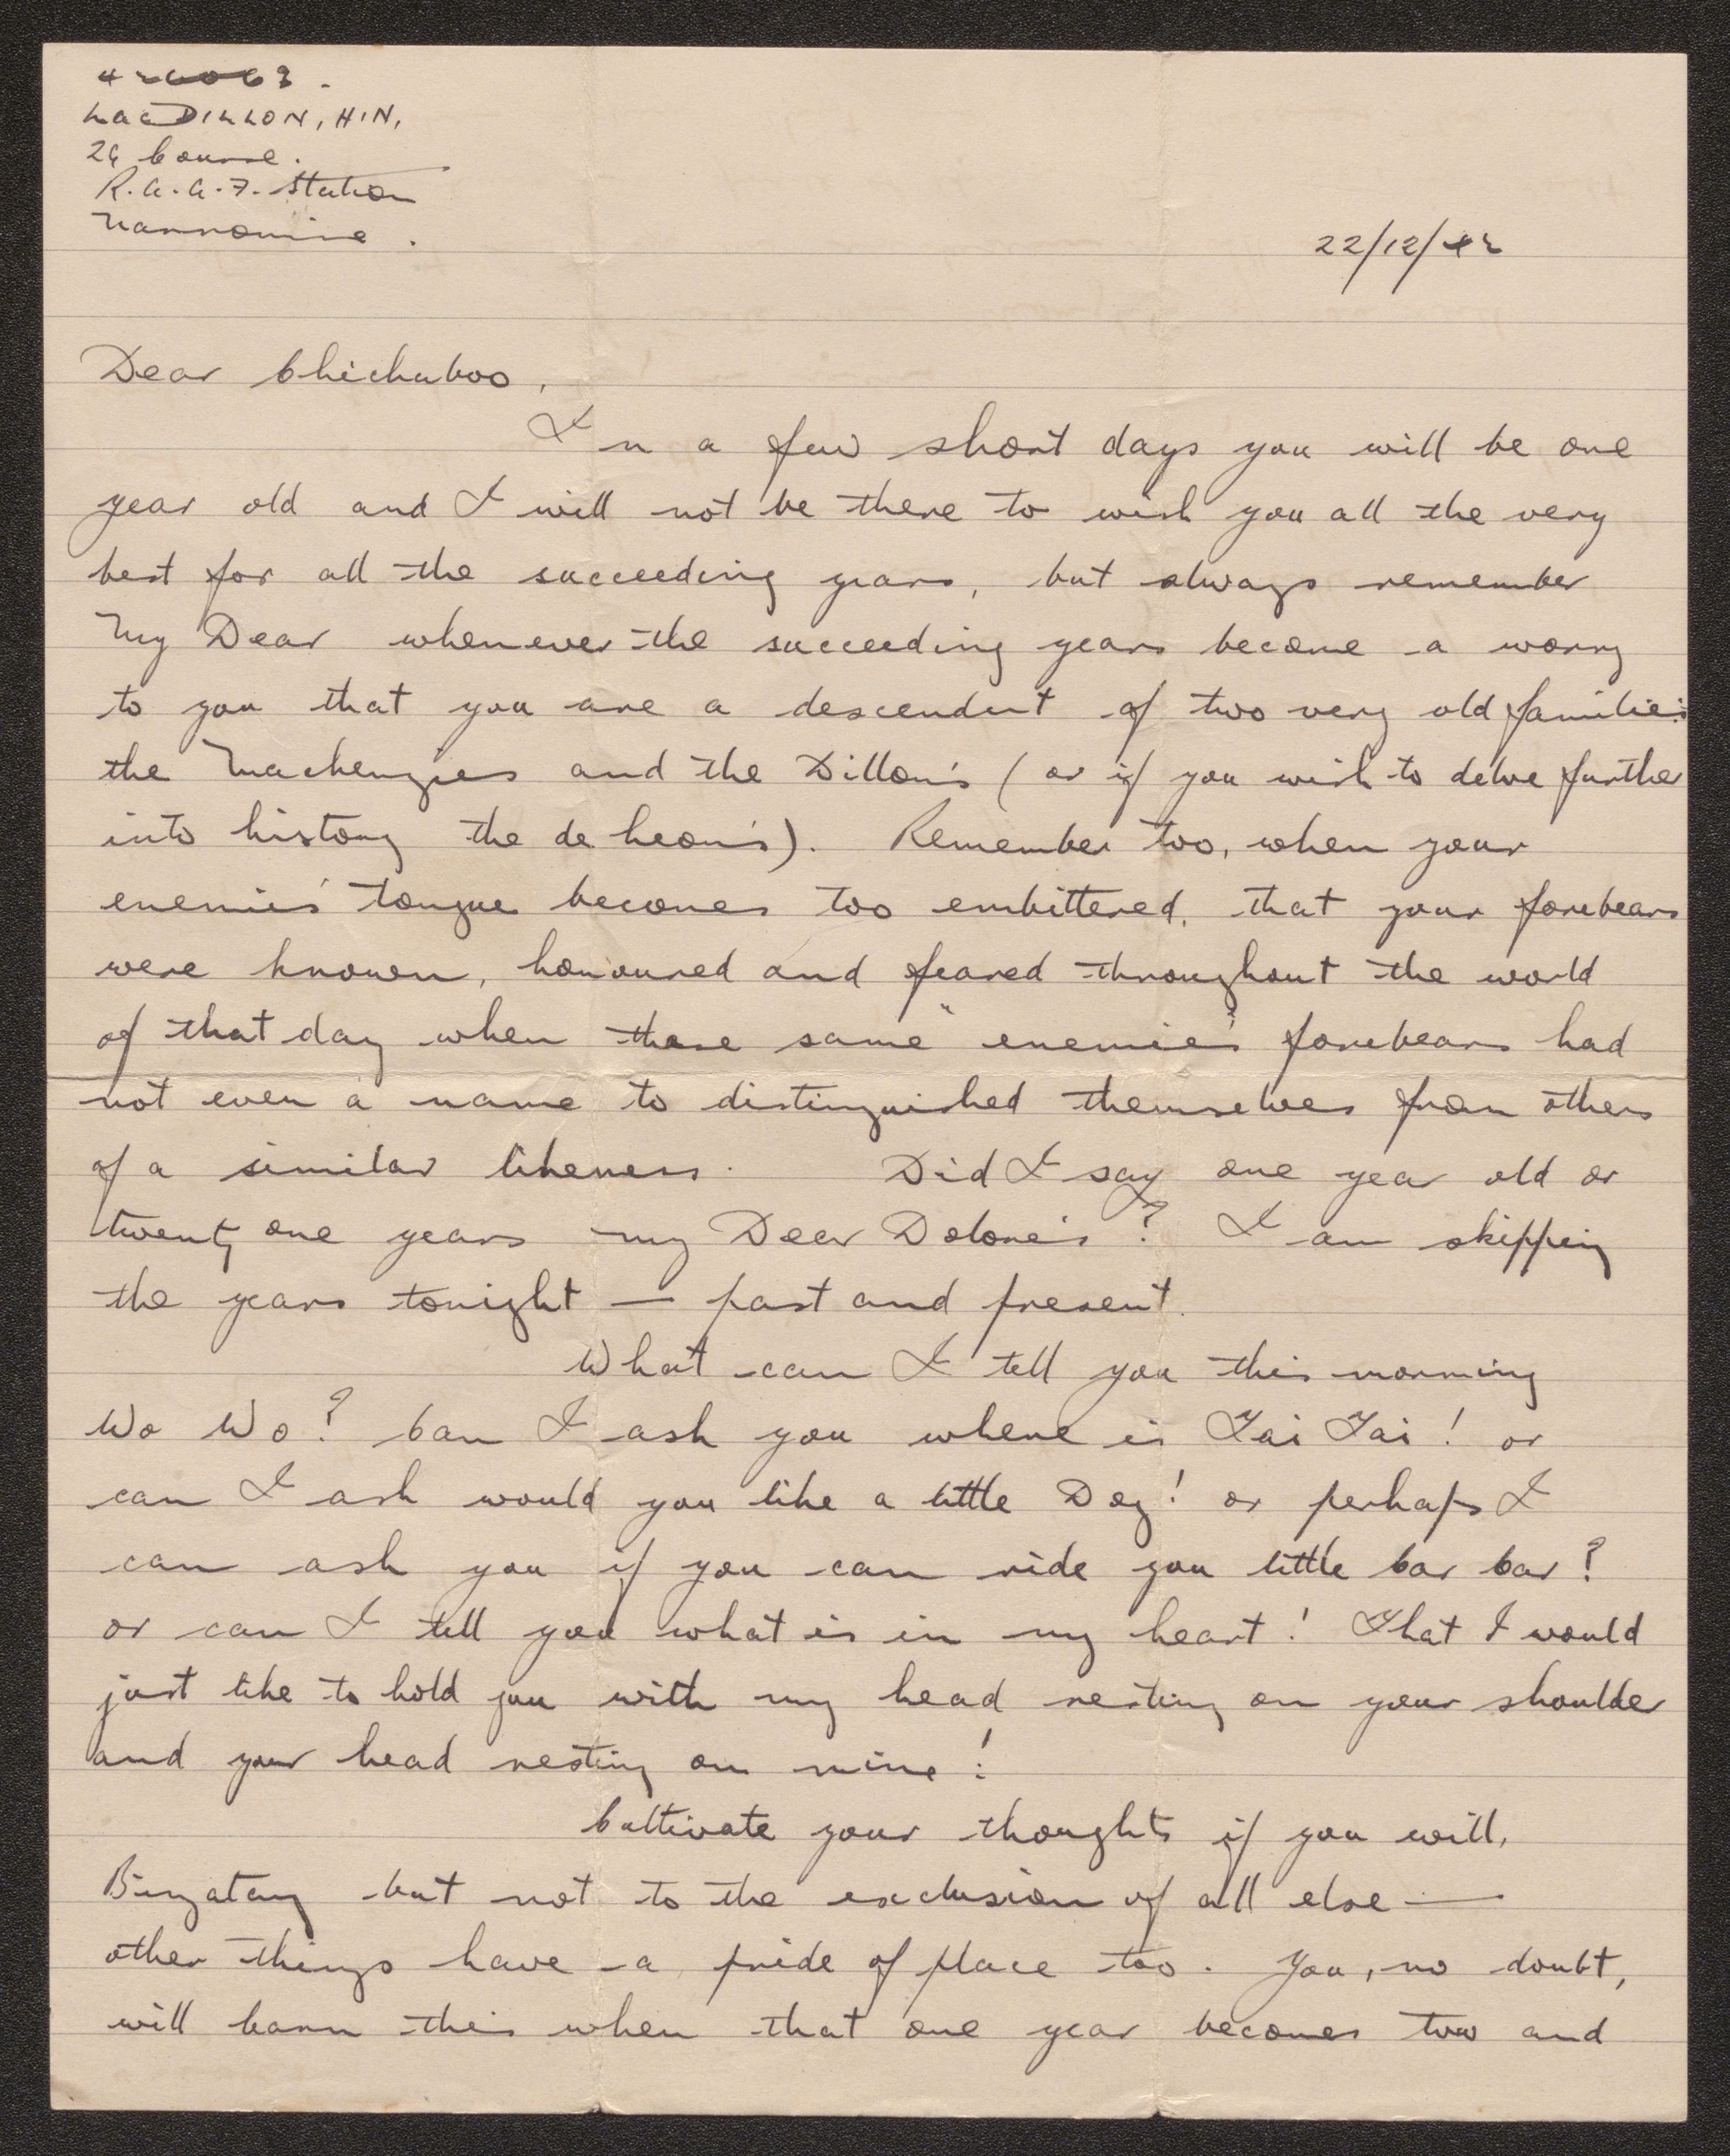 426063.
LAC DILLON, H.N,
26 Course.
R.A.A.F. Station
Narromine.
22/12/42
Dear Chickaboo,
In a few short days you will be one
year old and I will not be there to wish you all the very
best for all the succeeding years, but always remember
My Dear whenever the succeeding years become a worry
to you that you are a descendent of two very old families
the Mackenzies and the Dillon's (or if you wish to delve further
into history the de Leon's). Remember too, when your
enemies' tongue becomes too embittered, that your forebears
were known, honoured and feared throughout the world
of that day when these same "enemies" forebears had
not even a name to distinguished themselves from others
of a similar likeness. Did I say one year old or
twenty one years my Dear Dolore's? I am skipping
the years tonight — past and present.
What can I tell you this morning
Wo Wo? Can I ask you where is Tai Tai! or
can I ask would you like a little Dog! or perhaps I
can ask you if you can ride you little bar bar?
or can I tell you what is in my heart! That I would
just like to hold you with my head resting on your shoulder
and your head resting on mine!
Cultivate your thoughts if you will,
but not to the exclusion of all else —
other things have a pride of place too. You, no doubt,
will learn this when that one year becomes two and